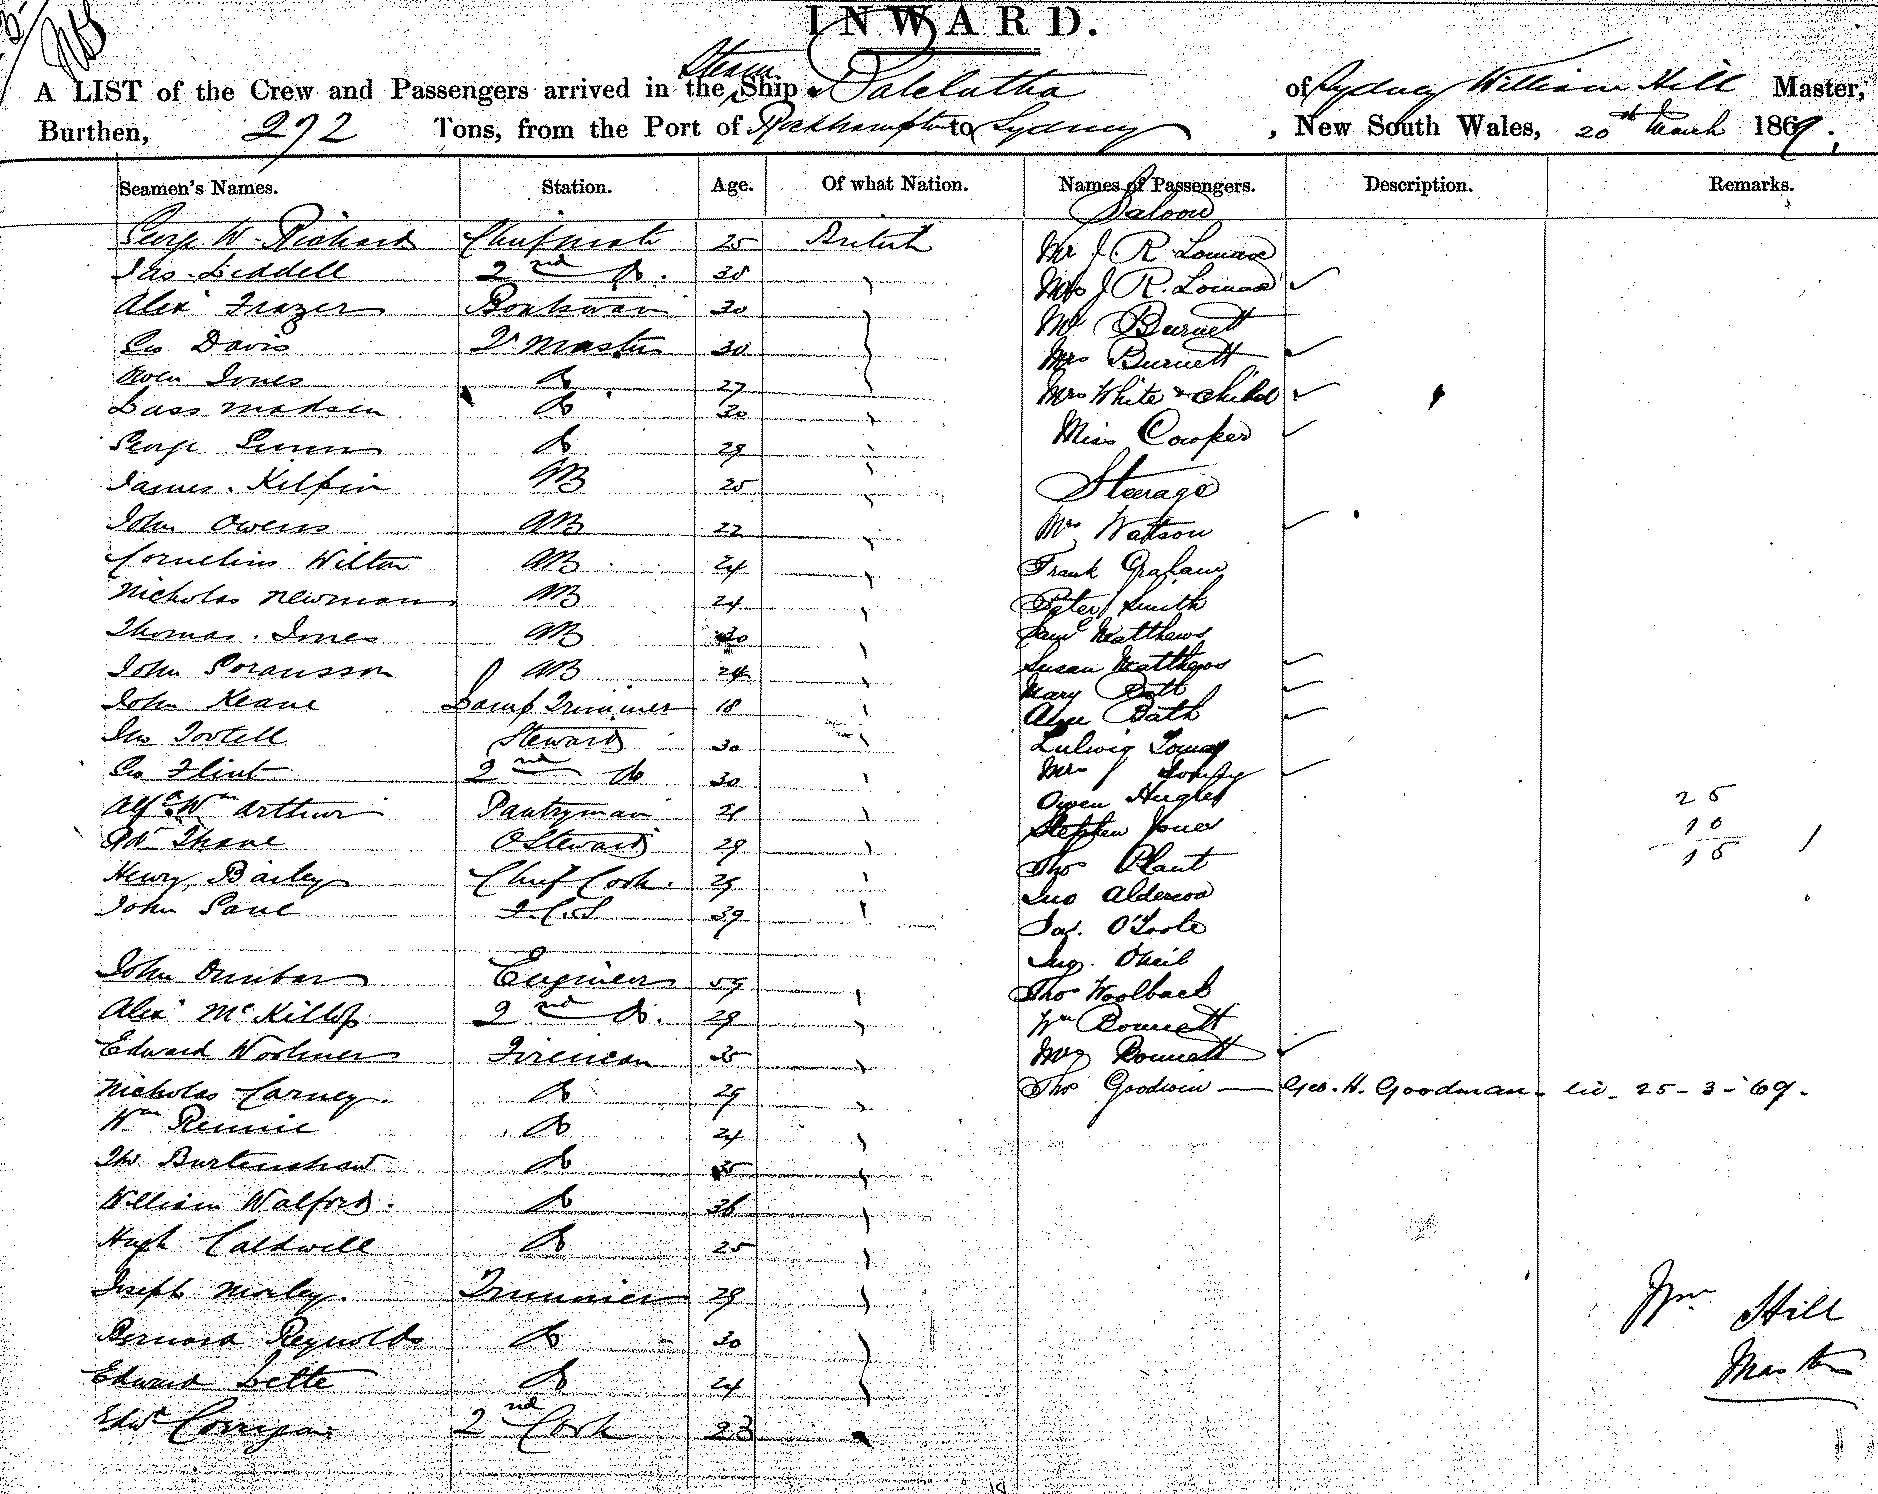 INWARD.
A LIST of the Crew and Passengers arrived in the Steam Ship Balclutha of Sydney William Hill Master,
Burthen, 292 Tons, from the Port of Rockhampton to Sydney, New South Wales, 20th March 1869.
Seamen's Names. Station. Age. Of what Nation. Names of Passengers. Description. Remarks.
Saloon
George W. Richard Chief mate 25 British Mr J R Lomax
Jas. Liddell 2nd Do. 38 Mrs J R. Lomax
Alexr Frazer Boatswain 30 Mr Burnett
Geo Davis Qr master 30 Mrs Burnett
Owen Jones Do 27 Mrs White & Child
Lass Madsen Do 30 Miss Cowper
George Do 29
James. Kilpin AB 25 Steerage
John Owens AB 22 Mrs Watson
Cornelius Wilton AB 24 Frank Graham
Nicholas Newman AB 24 Peter Smith
Thomas. Jones AB 30 Saml Matthews
John Soransson AB 24 Susan Matthews
John Keane Lamp Trimmer 18 Mary
Jno Tootell Steward 30 Bath
Geo Flint 2nd do 30 Ludwig
Mrs
Alfd Wm Arthur Pantryman 21 Owen Hughes 25
Thane Steward 29 Stephen Jones 10
Henry Bailey Chief Cook. 29 Thos Plant 15
John Saul 39 Jno Alderson
Jas. O'Toole
John Dunbar Engineer 59 Oneil
Alexr McKillop 2nd Do. 29 Thos Woolback
Wm Bonnett
Edward Fireman 35 Mrs Bonnett
Nicholas Carney. Do 29 Thos Goodwin — Geo. H. Goodman. lic. 25-3-'69.
Wm Rennie Do 24
Thos Burtenshaw Do 35
William Walford. Do 36
Hugh Caldwell Do 25
Joseph Morley. Trimmer 29 Wm Hill
Bernard Reynolds Do 30
Edward Lette Do 24 Master
Edwd Corrigan 2nd Cook 23